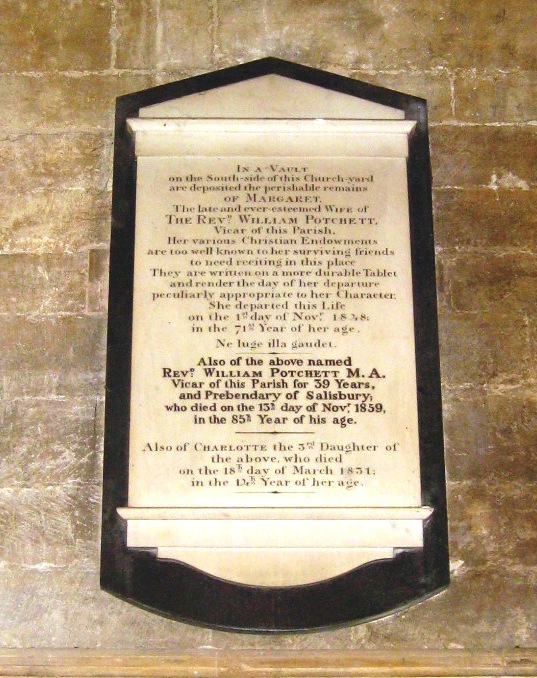 IN A VAULT
on the South-side of this Church-yard
are deposited the perishable remains
OF MARGARET,
The late and ever-esteemed WIFE of
THE REVD. WILLIAM POTCHETT,
VICAR of this PARISH.
HER various CHRISTIAN Endowments
are too well known to her surviving friends
to need reciting in this place
THEY are written on a more durable Tablet
and render the day of her departure
peculiarly appropriate to her CHARACTER.
SHE departed this LIFE
on the 1st day of NOVR.
in the 71st YEAR of her age.
Ne luge illa gaudet.
ALSO of the above named
REVD. WILLIAM POTCHETT M.A.
VICAR of this PARISH for 39 YEARS,
and PREBENDARY of SALISBURY;
who DIED on the 13th day of NOVR. 1859,
in the 85th YEAR of his age.
ALSO of CHARLOTTE the 3rd DAUGHTER of
the above, who died
on the 18th day of MARCH 1831;
in the YEAR of her age.